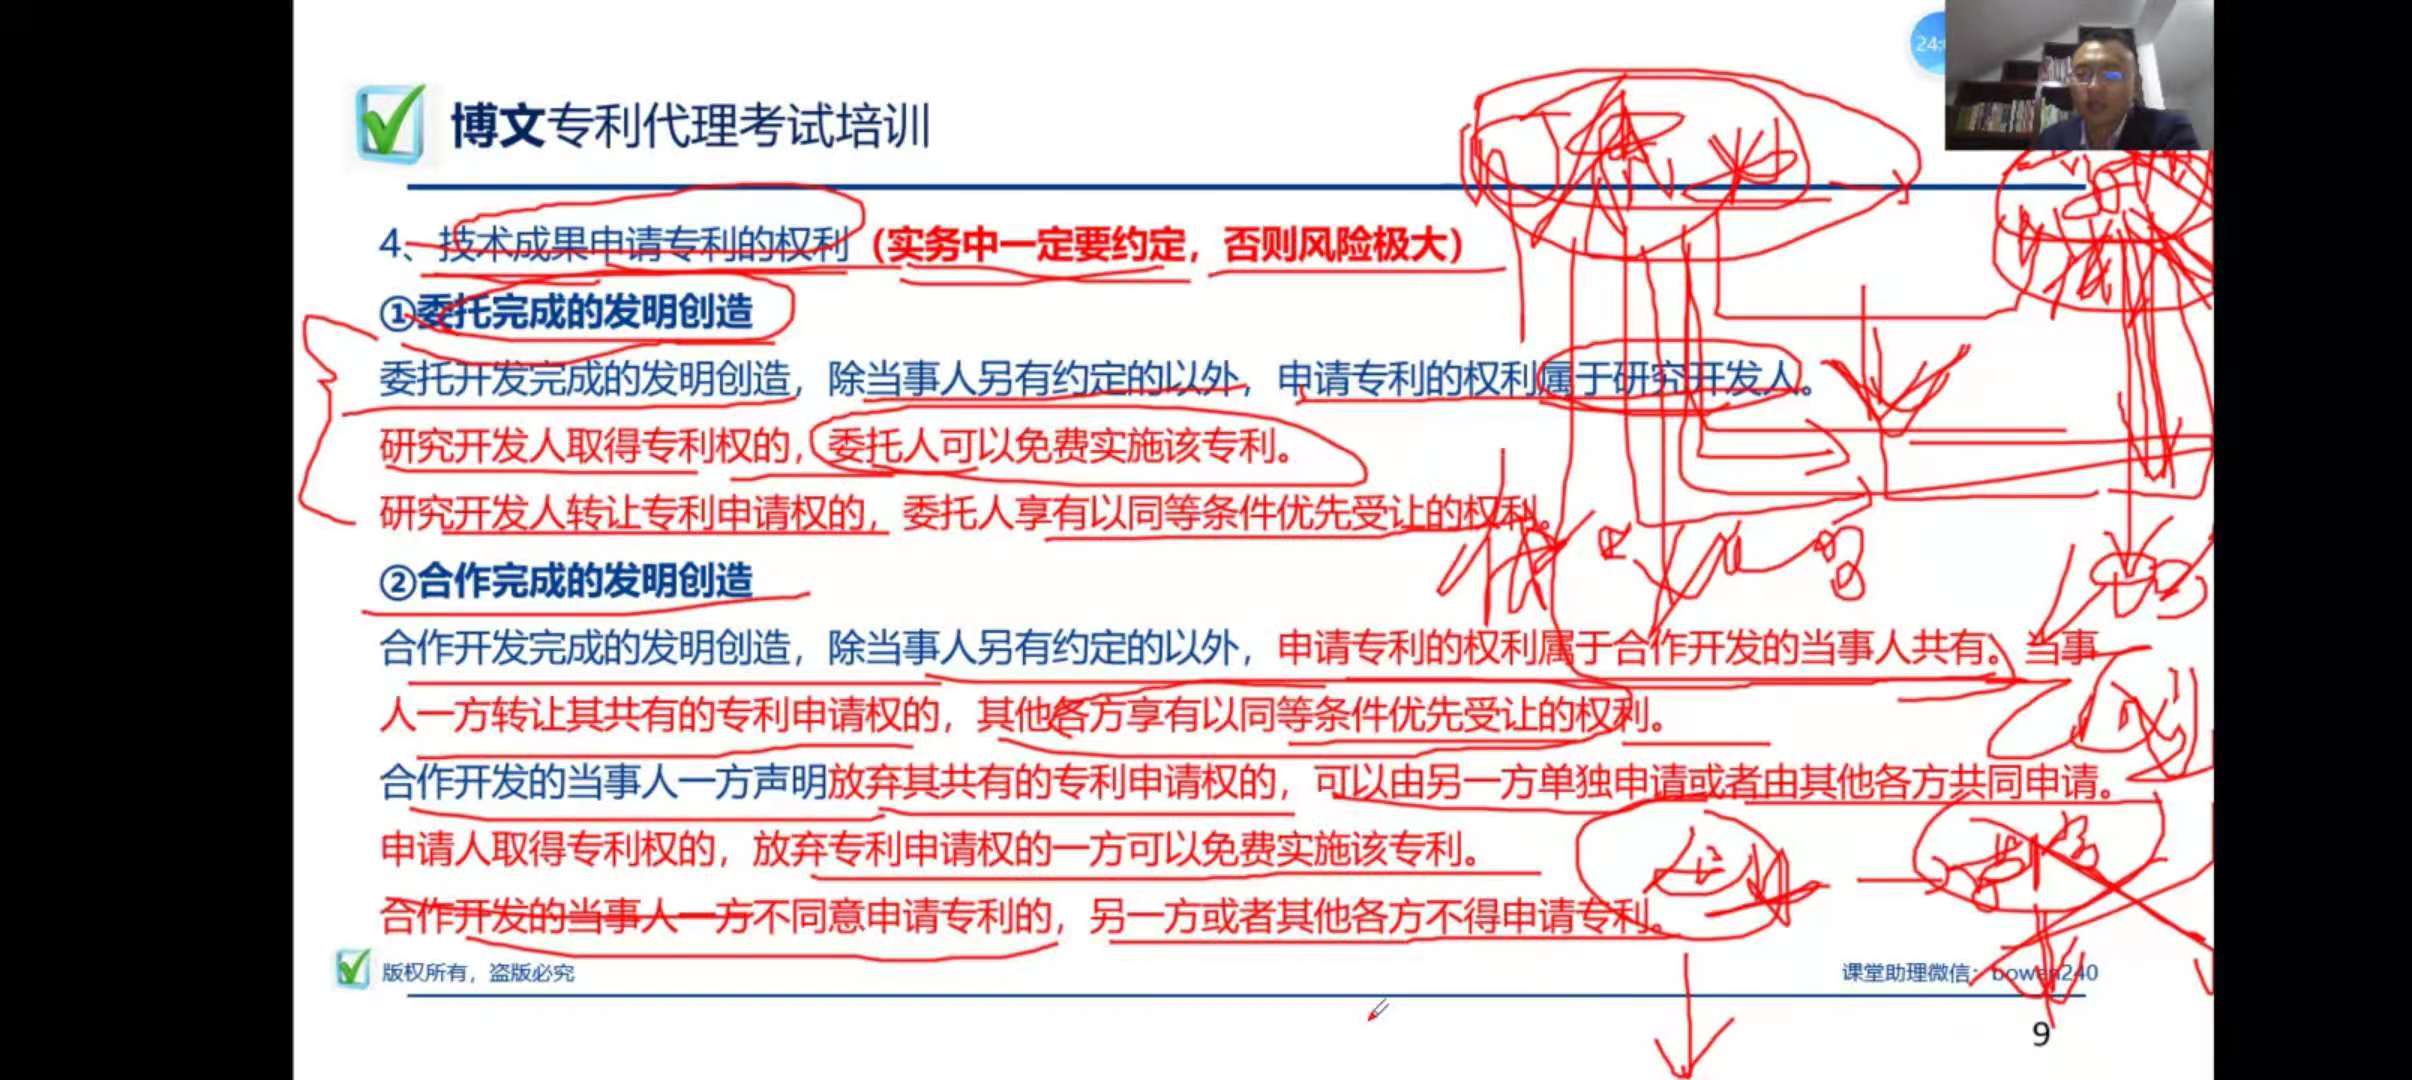 博文专利代理考试培训
4、技术成果申请专利的权利（实务中一定要约定，否则风险极大）
①委托完成的发明创造
委托开发完成的发明创造，除当事人另有约定的以外，申请专利的权利属于研究开发人。
研究开发人取得专利权的，委托人可以免费实施该专利。
研究开发人转让专利申请权的，委托人享有以同等条件优先受让的权利。
②合作完成的发明创造
合作开发完成的发明创造，除当事人另有约定的以外，申请专利的权利属于合作开发的当事人共有。当事
人一方转让其共有的专利申请权的，其他各方享有以同等条件优先受让的权利。
合作开发的当事人一方声明放弃其共有的专利申请权的，可以由另一方单独申请或者由其他各方共同申请。
申请人取得专利权的，放弃专利申请权的一方可以免费实施该专利。
合作开发的当事人一方不同意申请专利的，另一方或者其他各方不得申请专利。
版权所有，盗版必究
课堂助理微信：bowen240
9